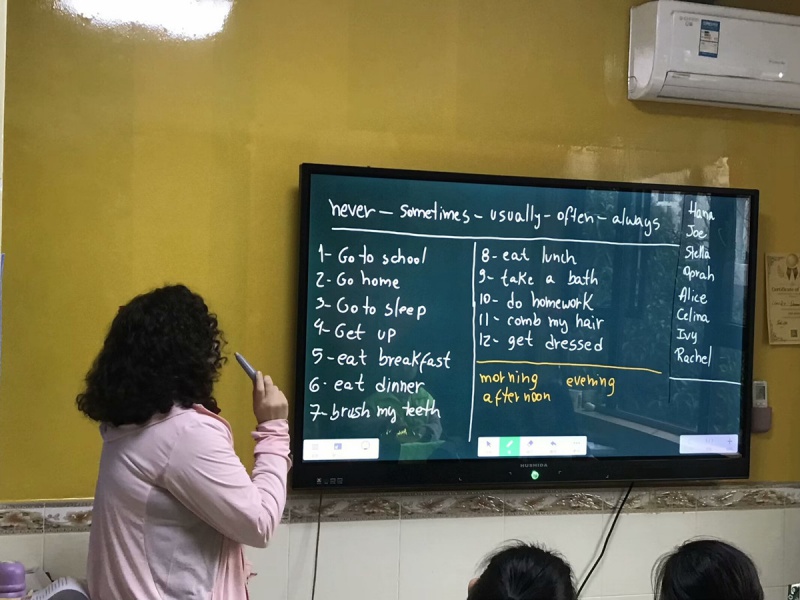 never - sometimes - usually - often - always
1- Go to school
2- Go home
3- Go to sleep
4- Get up
5- eat breakfast
6- eat dinner
7- brush my teeth
8- eat lunch
9- take a bath
10- do homework
11- comb my hair
12- get dressed
morning evening
afternoon
Hana
Joe
Stella
Oprah
Alice
Celina
Ivy
Rachel